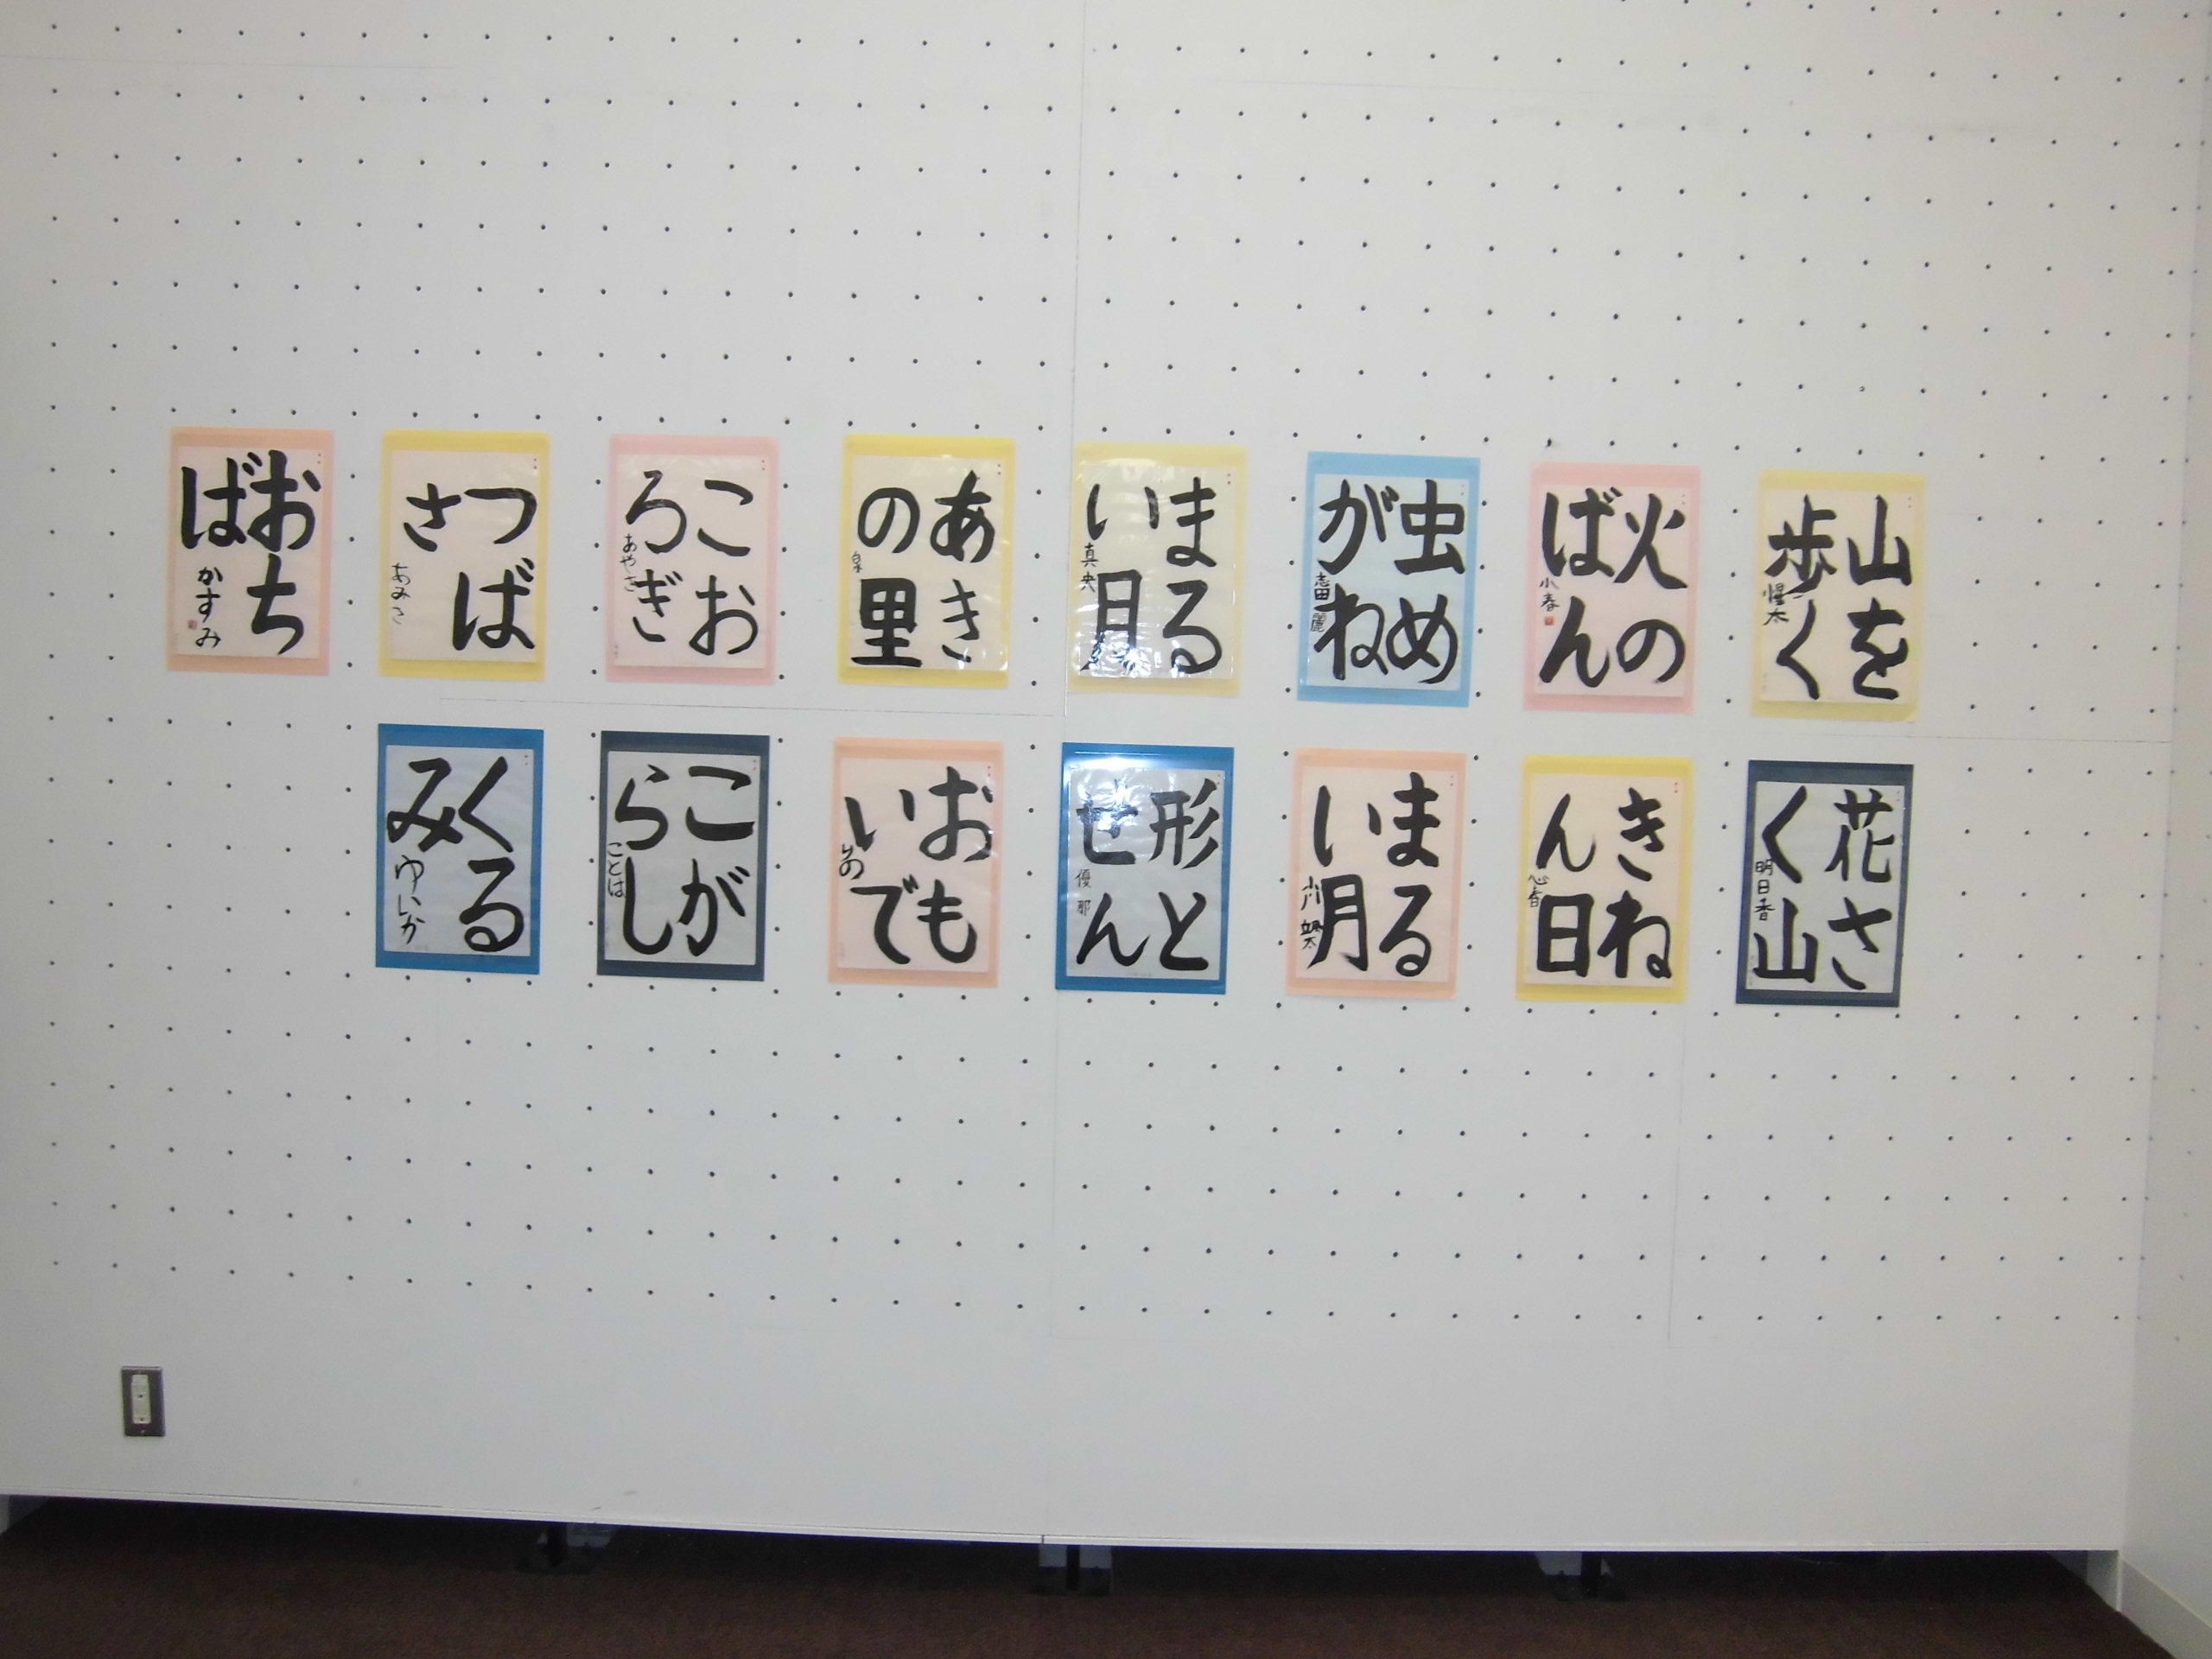 山を
歩く
火の
ばん
小春
虫め
がね
志田麗
まる
い月
真央
あき
の里
こお
ろぎ
あやさ
つば
さ
あみさ
おち
ば
かすみ
花さ
く山
明日香
きね
ん日
心春
まる
い月
小川颯太
形と
せん
優那
おも
いで
りの
こが
らし
ことは
くる
み
ゆいか